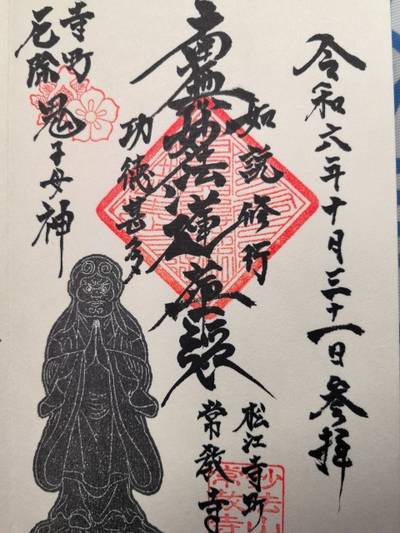 令和六年十月三十一日 参拝
如説修行
南無妙法蓮華経
功徳甚多
寺町
厄除
鬼子母神
松江寺町
常教寺
妙法山
常教寺